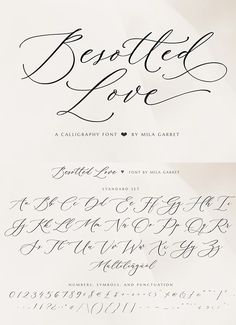 Besotted
Love
A CALLIGRAPHY FONT ♥ BY MILA GARRET
Besotted Love ♥ FONT BY MILA GARRET
STANDARD SET
Aa Bb Cc Dd Ee Ff Gg Hh Ii
Jj Kk Ll Mm Nn Oo Pp Qq Rr
Ss Tt Uu Vv Ww Xx Yy Zz
Multilingual
NUMBERS, SYMBOLS, AND PUNCTUATION